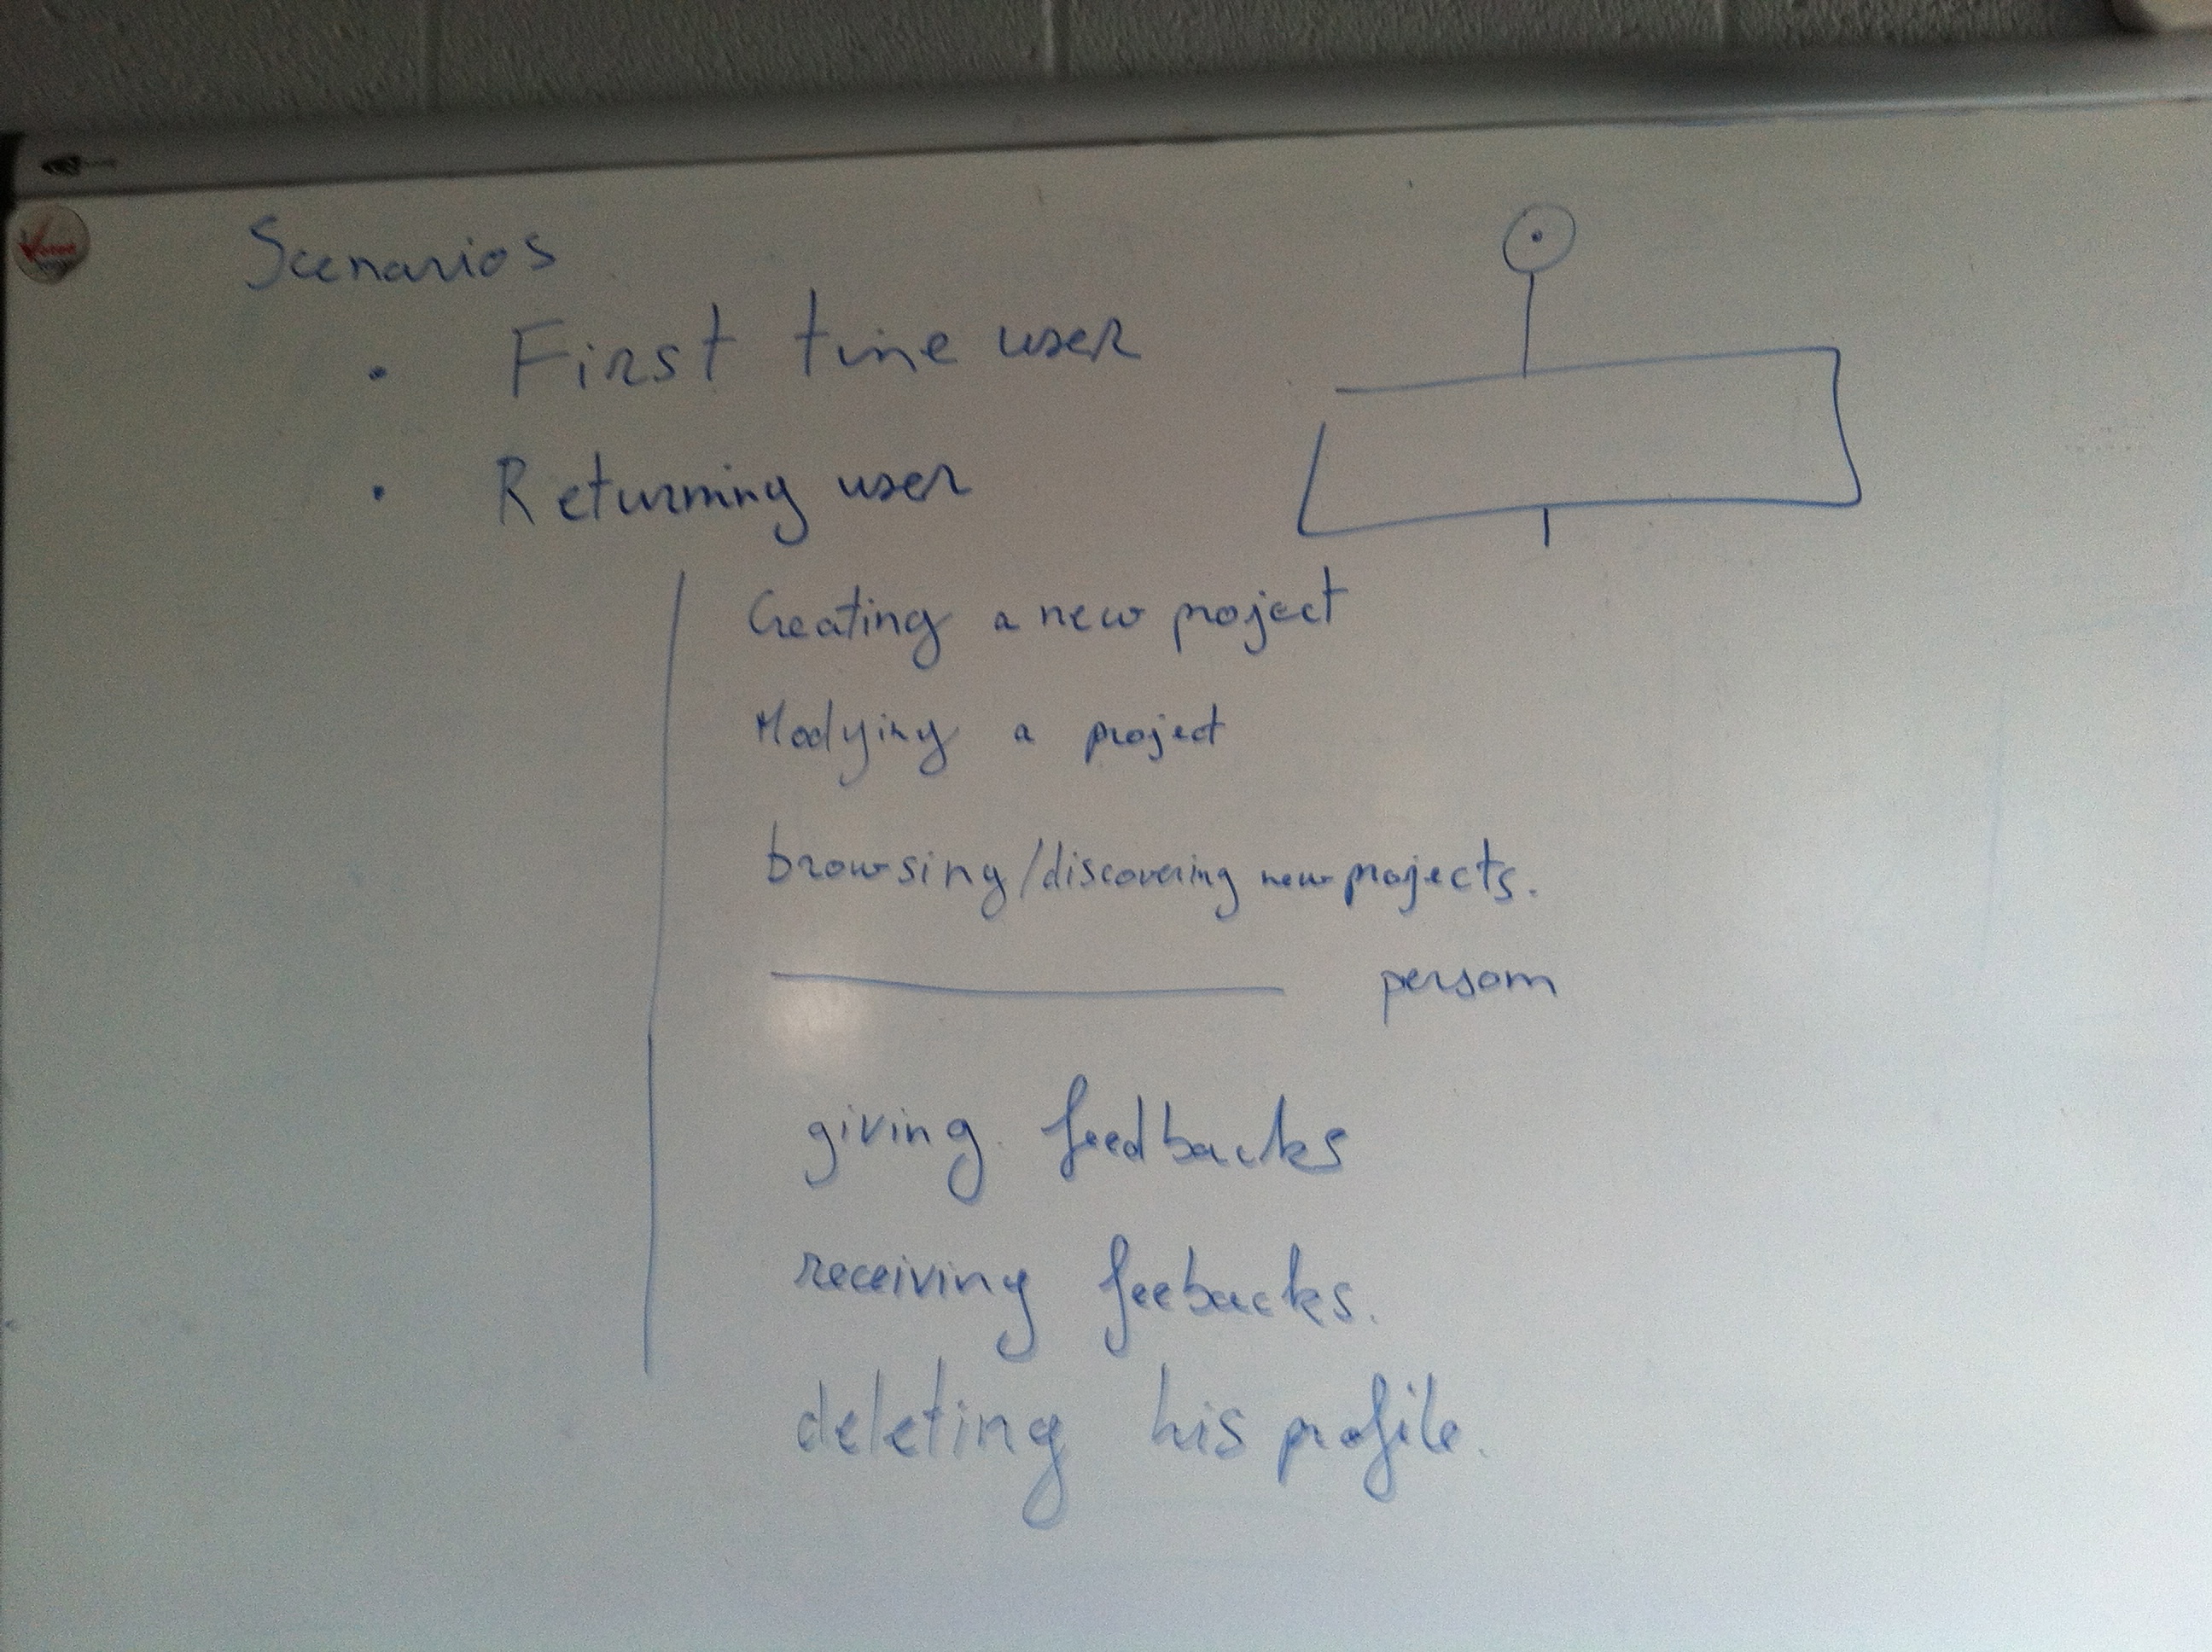 Scenarios
• First time user
• Returning user
Creating a new project
Modying a project
browsing/discovering new projects.
——— person
giving feedbacks
receiving feebacks.
deleting his profile.